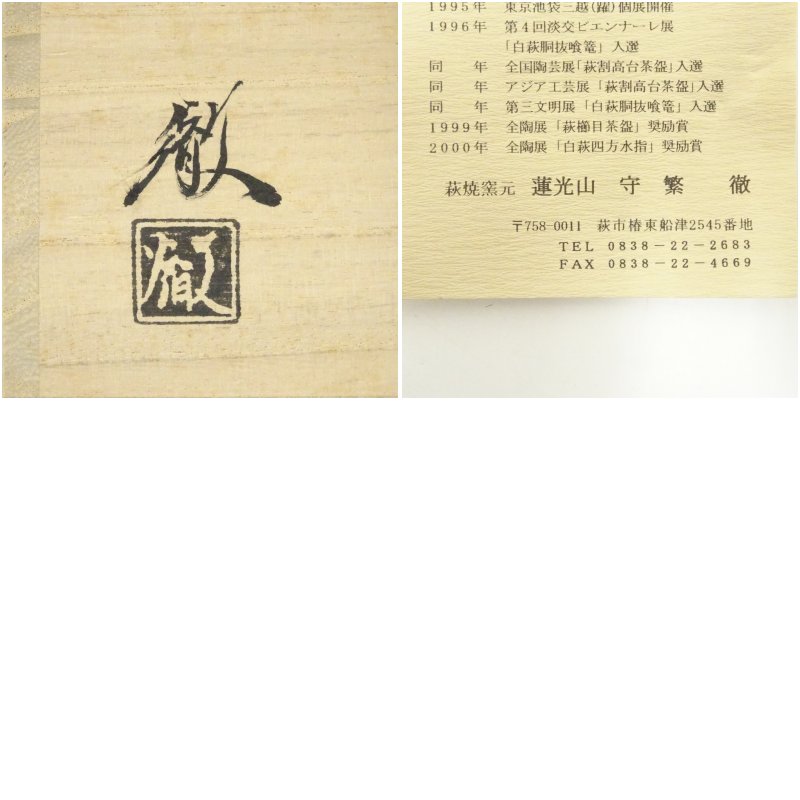 徹
徹
1995年 東京池袋三越(躍)個展開催
1996年 第4回淡交ビエンナーレ展
「白萩胴抜喰篭」入選
同 年 全国陶芸展「萩割高台茶盌」入選
同 年 アジア工芸展「萩割高台茶盌」入選
同 年 第三文明展「白萩胴抜喰篭」入選
1999年 全陶展「萩櫛目茶盌」奨励賞
2000年 全陶展「白萩四方水指」奨励賞
萩焼窯元 蓮光山 守繁 徹
〒758-0011 萩市椿東船津2545番地
TEL 0838-22-2683
FAX 0838-22-4669